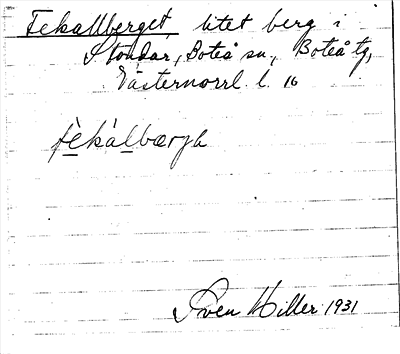 Tekallberget, litet berg i
Stöndar, Boteå sn, Boteå tg,
Västernorrl. l. 16
tèkàlbærgh
Sven Hiller 1931